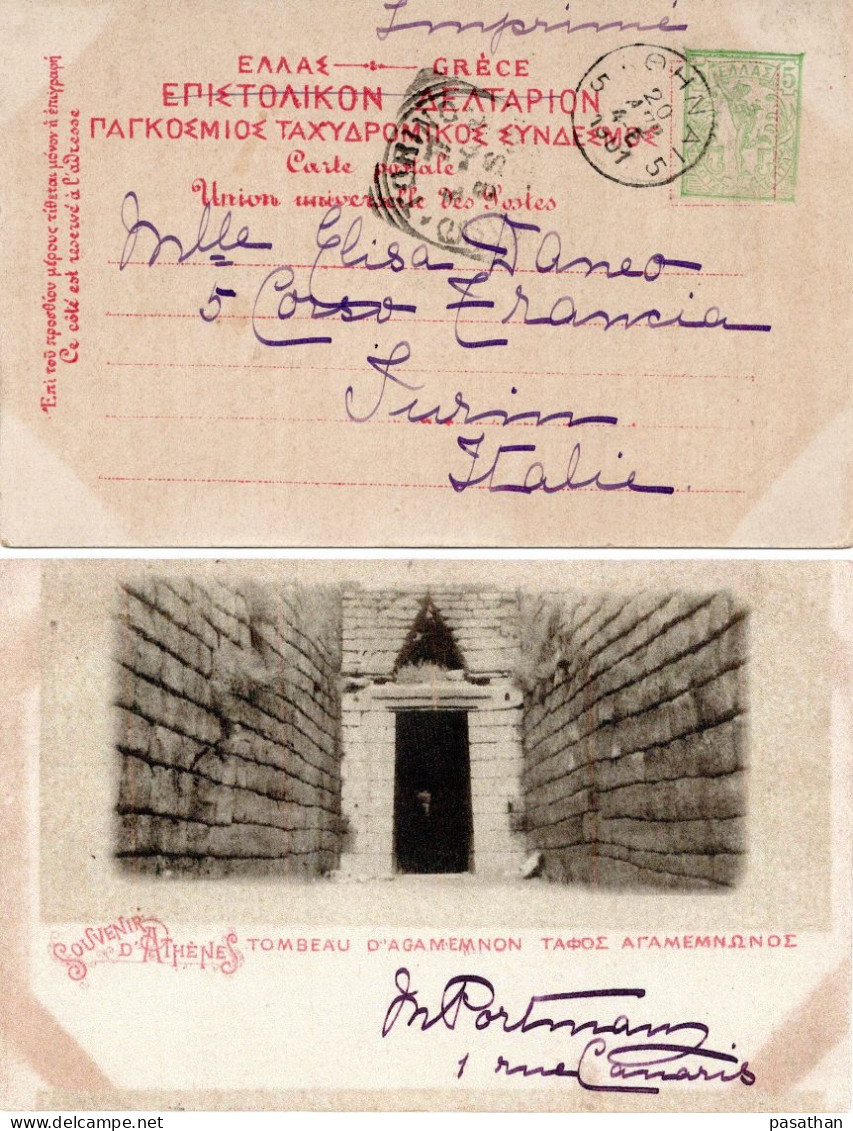 Imprimé
ΕΛΛΑΣ GRÈCE
ΕΠΙΣΤΟΛΙΚΟΝ ΔΕΛΤΑΡΙΟΝ
ΠΑΓΚΟΣΜΙΟΣ ΤΑΧΥΔΡΟΜΙΚΟΣ ΣΥΝΔΕΣΜΟΣ
Carte postale
Union universelle des Postes
Ἐπὶ τοῦ προσθίου μέρους τίθεται μόνον ἡ ἐπιγραφή
Ce côté est reservé à l'adresse
ΑΘΗΝΑΙ 5
20
ΑΠΡ
1901
5
ΕΛΛΑΣ 5
Mlle Elisa Daneo
5 Corso Francia
Turin
Italie
SOUVENIR D'ATHÈNES
TOMBEAU D'AGAMEMNON ΤΑΦΟΣ ΑΓΑΜΕΜΝΩΝΟΣ
M Portmann
1 rue Canaris
pasathan